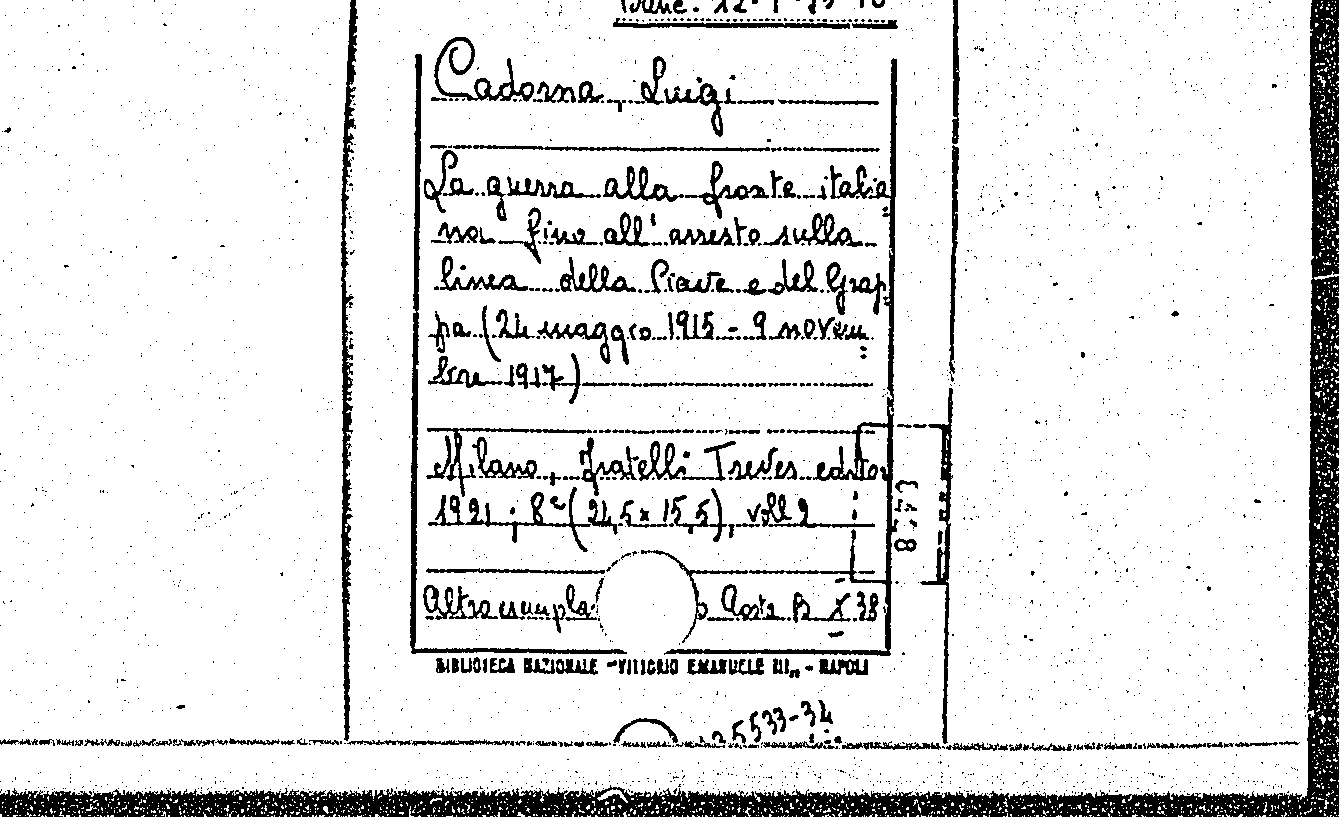 Cadorna, Luigi
La guerra alla fronte italia=
na fino all'arresto sulla
linea della Piave e del Grap=
pa (24 maggio 1915 - 9 novem=
bre 1917)
Milano, Fratelli Treves editori
1921; 8° (24,5x15,5), voll 2
Altro esempla Coste B X 38
BIBLIOTECA NAZIONALE "VITTORIO EMANUELE III" - NAPOLI
5533-34